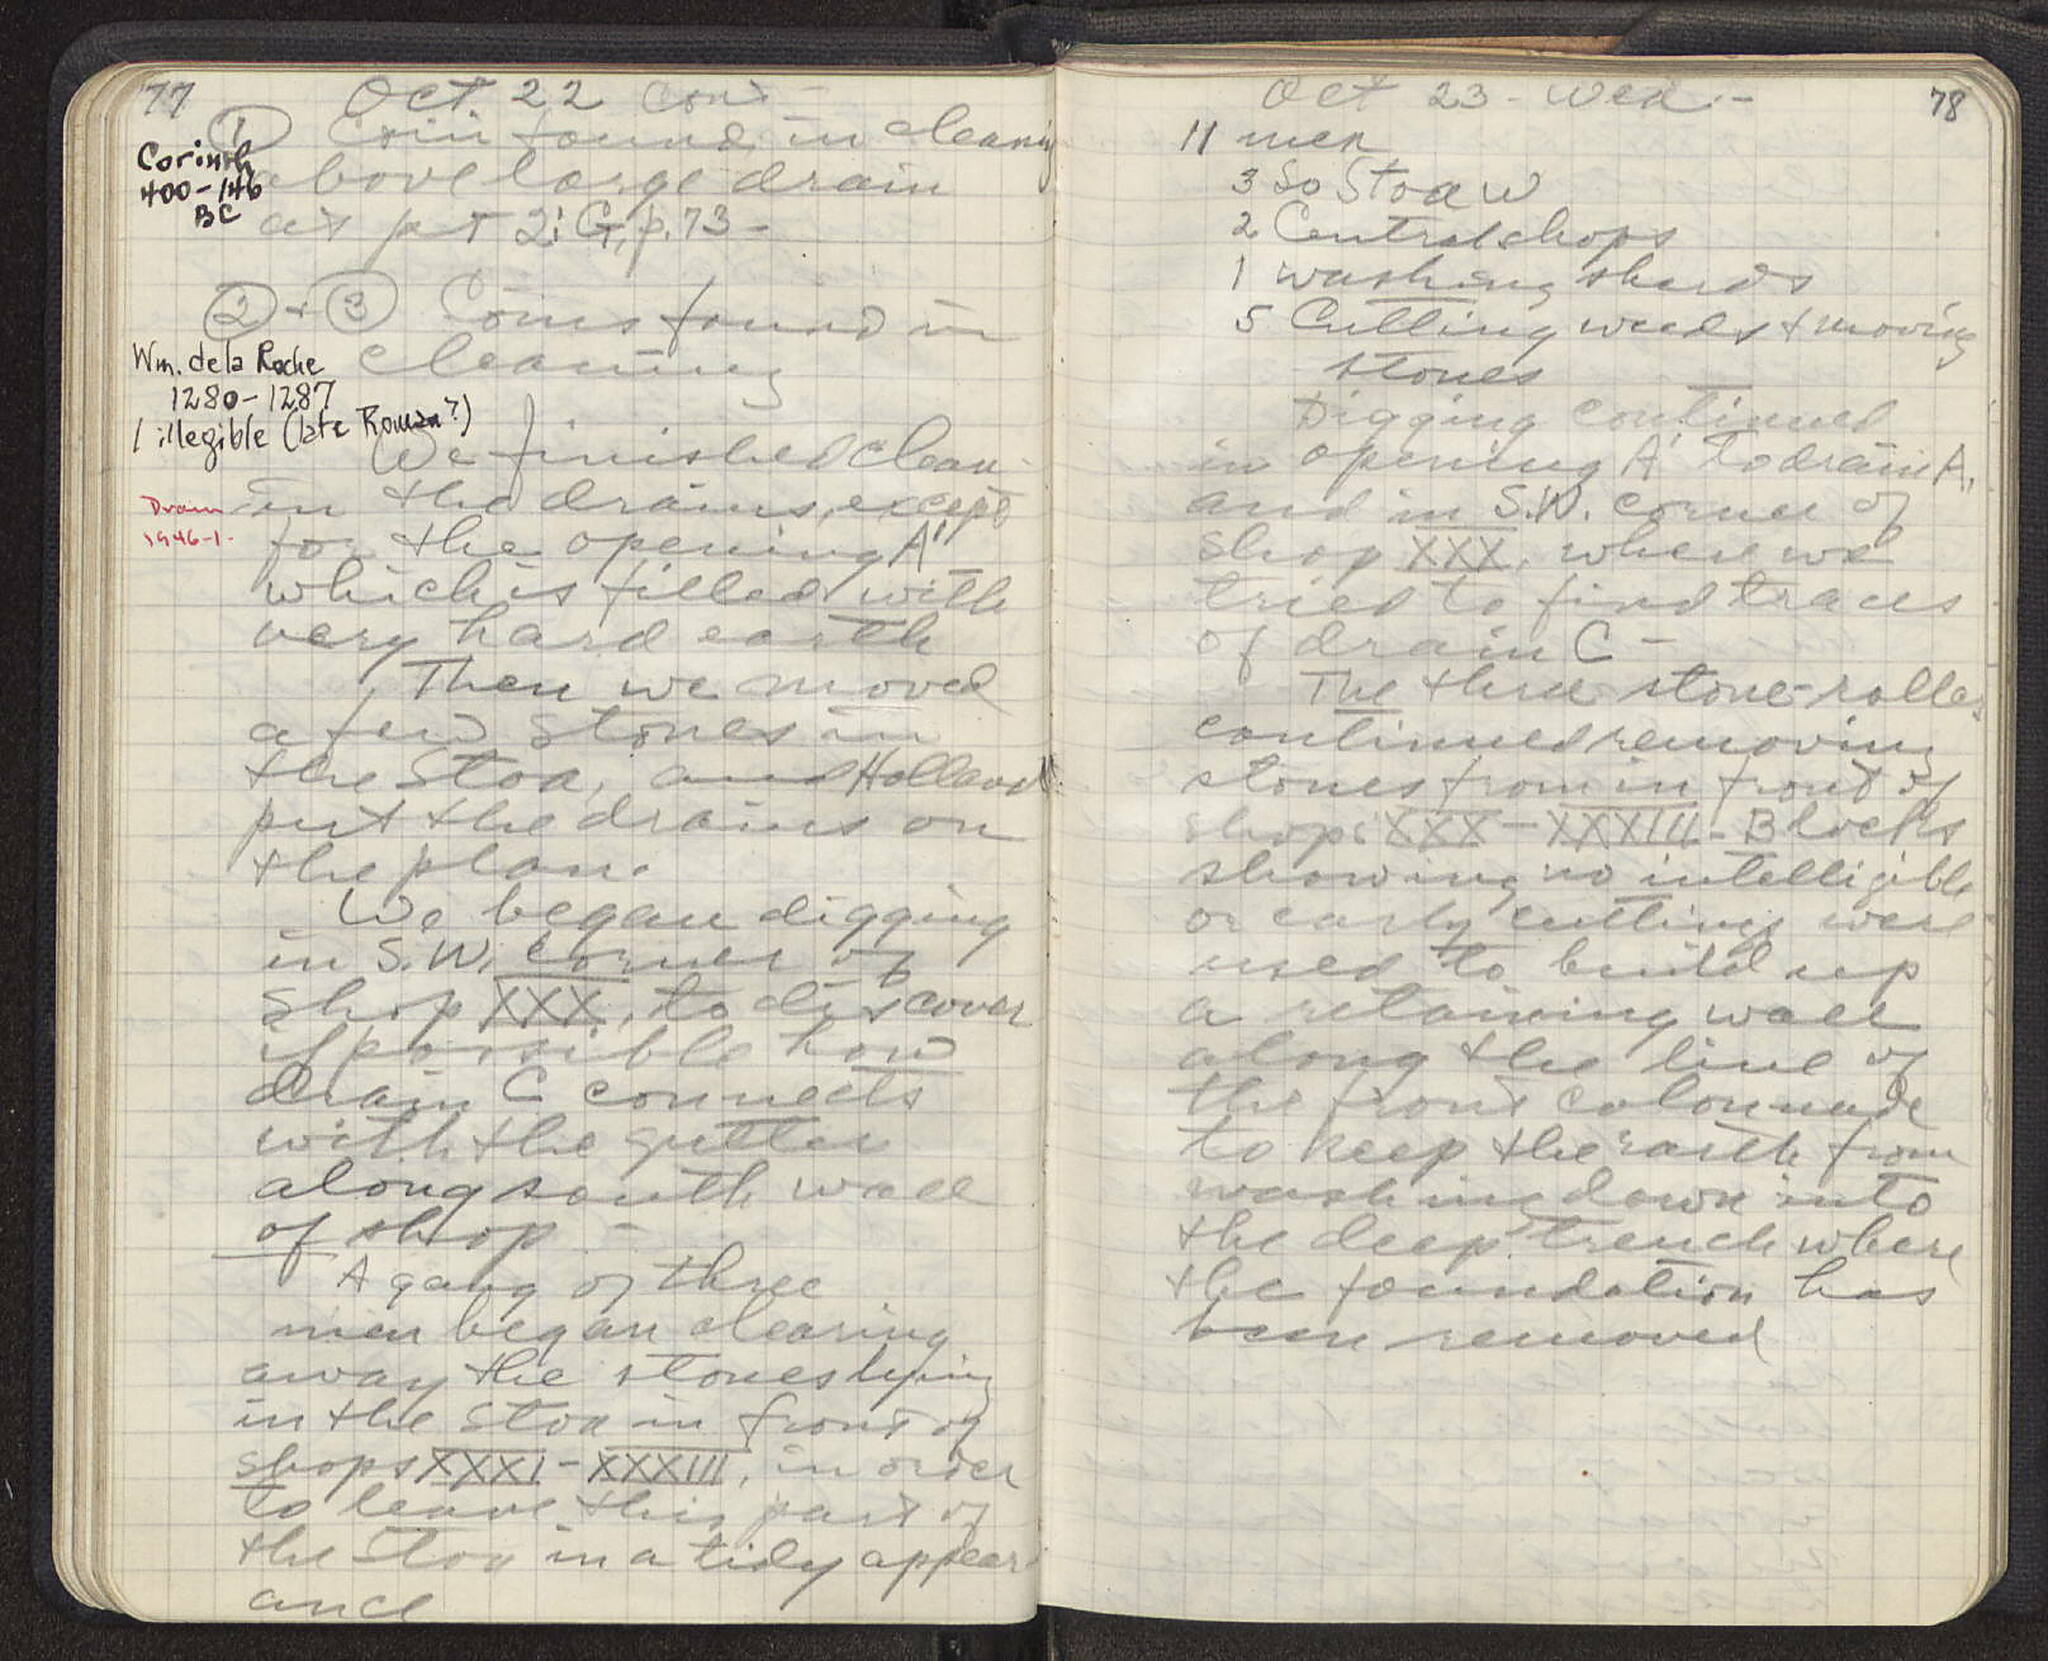 77
Oct. 22 Cont -
① Coin found in cleaning
Corinth
400-146
BC
above large drain
at pt 2' G, p. 73 -
② + ③ Coins found in
cleaning
Wm. de la Roche
1280-1287
1 illegible (late Roman?)
We finished clean-
Drain
1946-1-
in the drains, except
for the opening A'
which is filled with
very hard earth
Then we moved
a few stones in
the Stoa, and Holland
put the drains on
the plan.
We began digging
in S.W. corner of
shop XXX, to discover
if possible how
drain C connects
with the gutter
along south wall
of shop -
A gang of three
men began clearing
away the stones lying
in the Stoa in front of
shops XXXI - XXXIII, in order
to leave this part of
the Stoa in a tidy appear
ance
78
Oct 23 - Wed -
11 men
3 So Stoa W
2 Central shops
1 washing sherds
5 Cutting weeds + moving
stones
Digging continued
in opening A' to drain A,
and in S.W. corner of
shop XXX, where we
tried to find traces
of drain C -
The three stone-rollers
continued removing
stones from in front of
shops XXX - XXXIII - Blocks
showing no intelligible
or early cuttings were
used to build up
a retaining wall
along the line of
the front colonnade
to keep the earth from
washing down into
the deep trench where
the foundation has
been removed